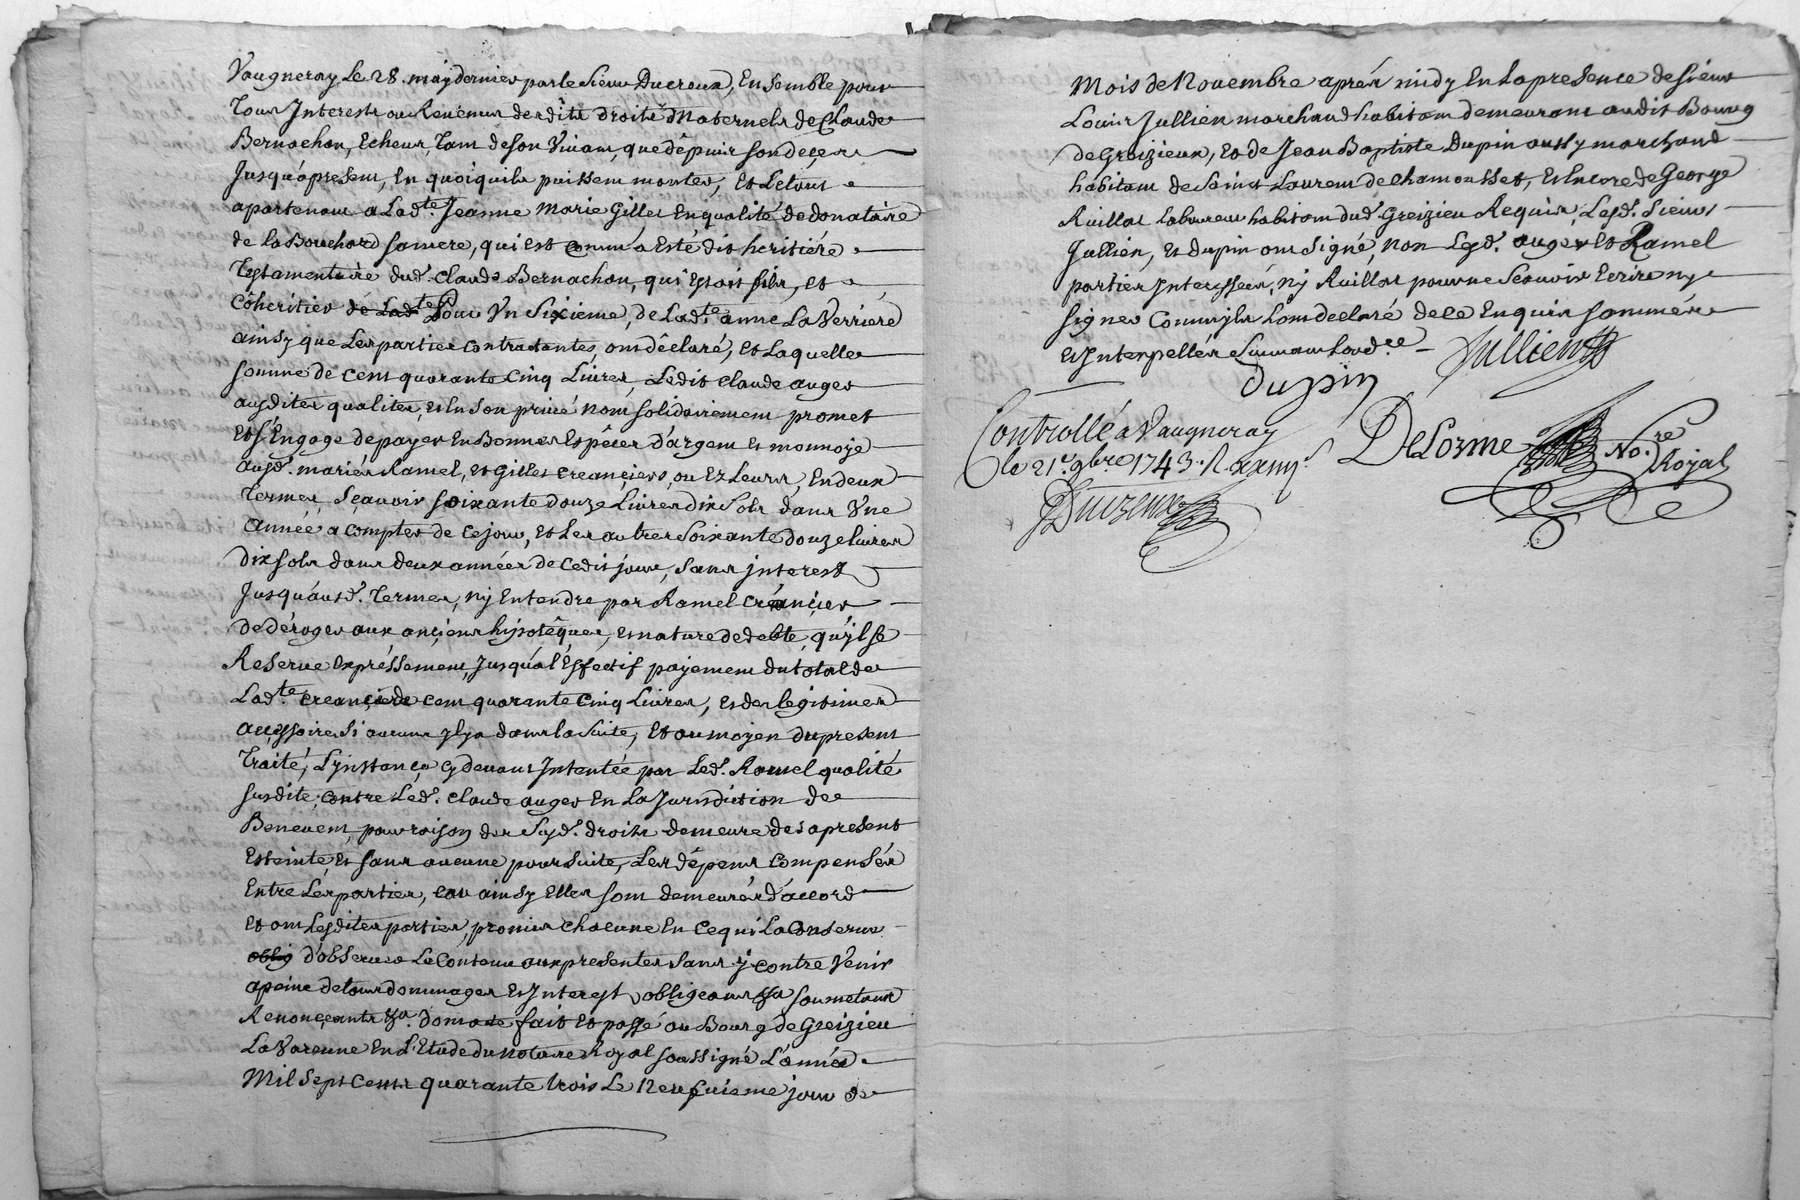 Vaugneray Le 28 may dernier par le Sieur Ducreux, Ensemble pour
Tous Interests ou Revenus desdits droits Maternels de Claude
Bernachon, Echeus, Tant de son Vivant, que dêpuis son deçes
Jusquápresent, En quoiquils puissent monter, Et Le tout
apartenant a Ladte. Jeanne Marie Gilles En qualité de donataire
de la Bouchard sa mere, qui est comm'a Esté dit heritiére
Testamentaire dud. Claude Bernachon, qui Estoit fils, et
Côheritier de Ladte Pour Vn Sixieme, de Ladte. anne La Verriére
ainsy que Les parties contractantes, ont dêclaré, Et Laquelle
somme de cent quarante Cinq Livres, Ledit Claude auger
ausdites qualites, et En son privé nom solidairement promet
Et s'Engage de payer En Bonnes Espêces d'argent et monnoye
ausd. mariés Ramel, et Gilles creançiers, ou Ez Leurs, En deux
Termes, Sçauoir soixante douze Livres dix sols dans Vne
année a compter de ce jour, et Les autres Soixante douze livres
dix sols dans deux années de cedit jour, sans jnterest
Jusquáusd. Termes, ny Entendre par Ramel créançier
de déroger aux ançiens hypotêques, et nature de debte, qu'jl se
Reserve Expréssement, Jusqu'al'Effectif payement du total de
Ladte. creançe de cent quarante Cinq Livres, et des legitimes
accessoires si aucuns y lya dans la suite, Et au moyen du present
Traité, L'ynstançe cy devant Intentée par Led. Ramel qualité
susdite contre Led. Claude auger En La Jurisdiction de
Benevent, pour raison des susd. droits demeure des apresent
Esteinte, Et sans aucune poursuite, Les dépens compensés
Entre Les parties, car ainsy Elles sont demeurés d'accord
Et ont Lesdites parties, promis chacune En ce qui La Conserne
oblig d'observer Le Contenu aux presentes sans y contre Venir
apeine de tous dommages Et Interest, obligeant &a soumetant
Renonçants &a. dont acte fait Et passé au Bourg de Greizieu
La Varenne En L'Etude du notaire Royal soussigné L'année
Mil Sept Cents quarante trois Le Neufuieme jour de
Mois de Nouembre aprés midy En La presence de Sieur
Louis Jullien marchand habitant demeurant audit Bourg
de Greizieux, et de Jean Baptiste Dupin aussy marchand
habitant de Saint Laurent de Chamousset, et Encore de George
Ruillat Laboureur habitant dud. Greizieu Requis, Lesd. Sieurs
Jullien, et Dupin ont Signé, non Lesd. auger et Ramel
parties Interesseés, ny Ruillat pour ne Scauoir Ecrire ny
signer Comm'jls L'ont declaré de ce Enquis sommés
et Interpellés suivant Lordce
Jullien
dupin
Controllé a Vaugneray
le 21e. 9bre 1743. R.
DeLorme Nore. Royal
Ducreux